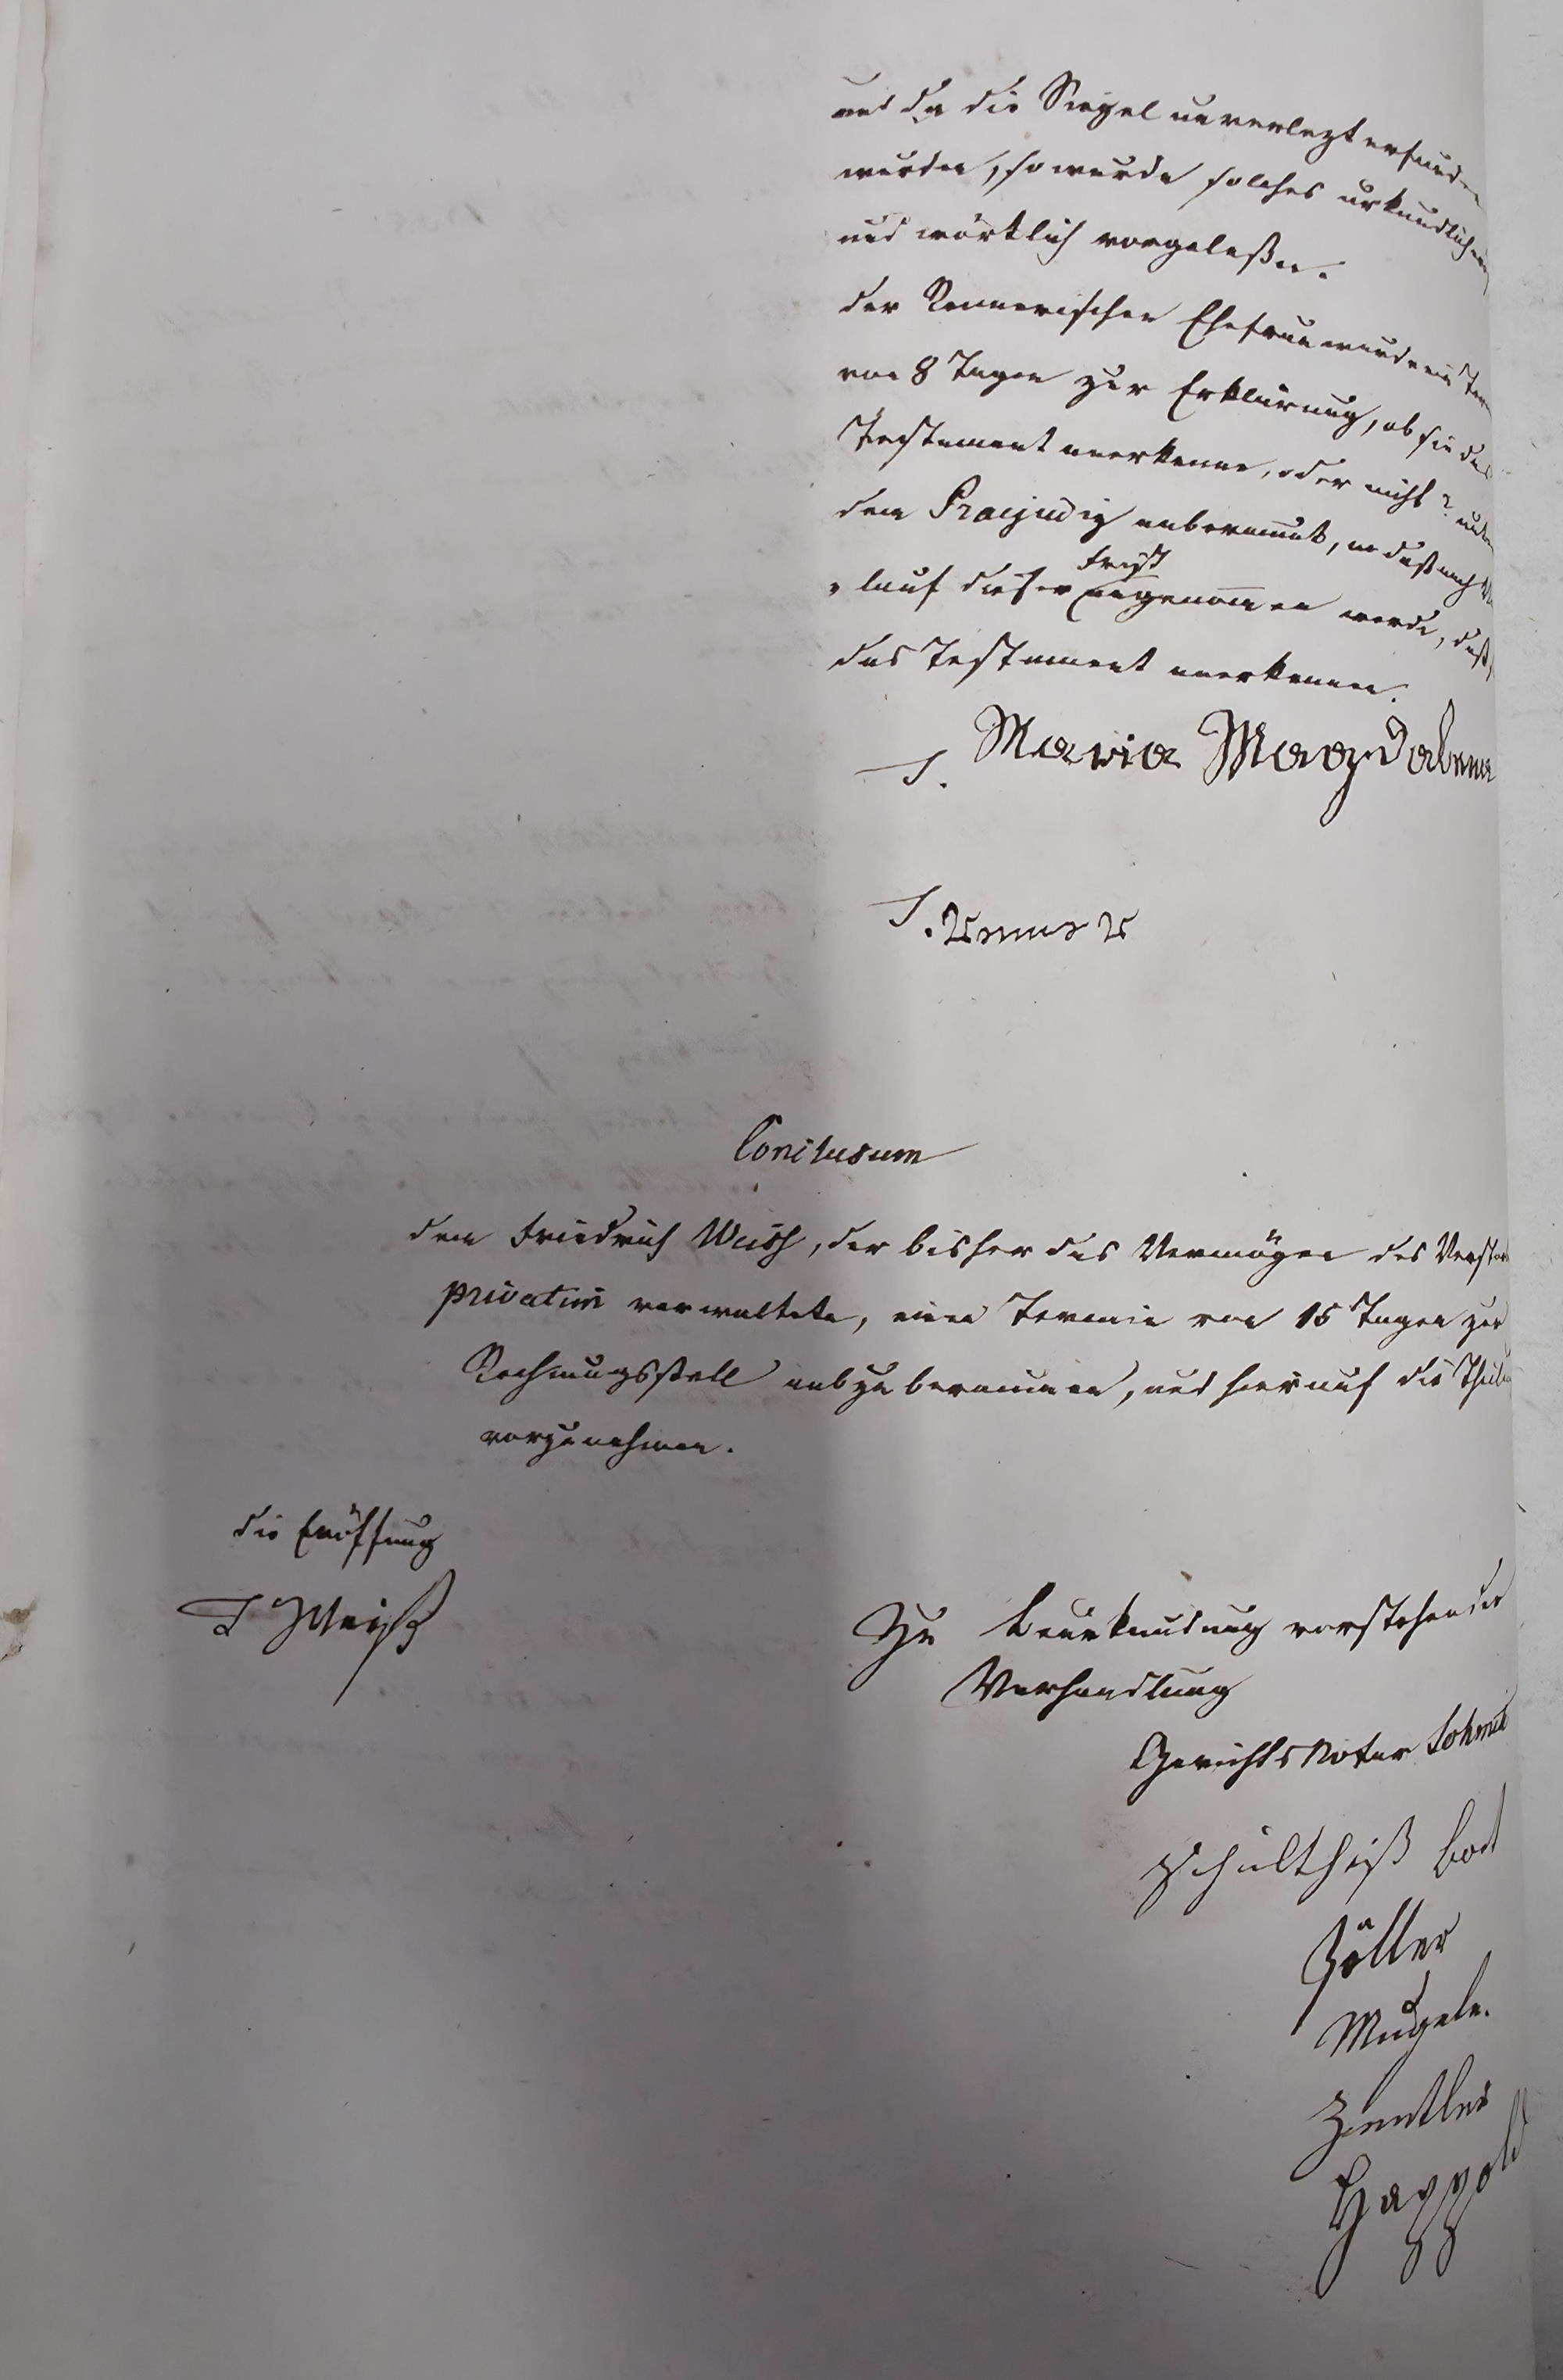 und da die Siegel unverlezt erfunden
wurden, so wurde solches urkundlich
und wörtlich vorgeleßen.
der Rennerischen Ehefrau wurde ein
von 8 Tagen zur Erklärung, ob sie das
Testament anerkenne, oder nicht?
dem Praejudiz anberaumt, daß nach
lauf dieser Frist angenommen werde, daß
das Testament anerkannt.
T. Maria Magdalena
T. Renner
Conclusum
dem Friedrich Weiss, der bisher das Vermögen des
privatim verwaltete, einen Termin von 15 Tagen zur
Rechnungsstell anzuberaumen, und hierauf die
vorzunehmen.
die Eröffnung
T Weiß
Zu Beurkundung vorstehender
Verhandlung
Gerichts Notar
Schultheiß
Zöller
Mugele.
Happold